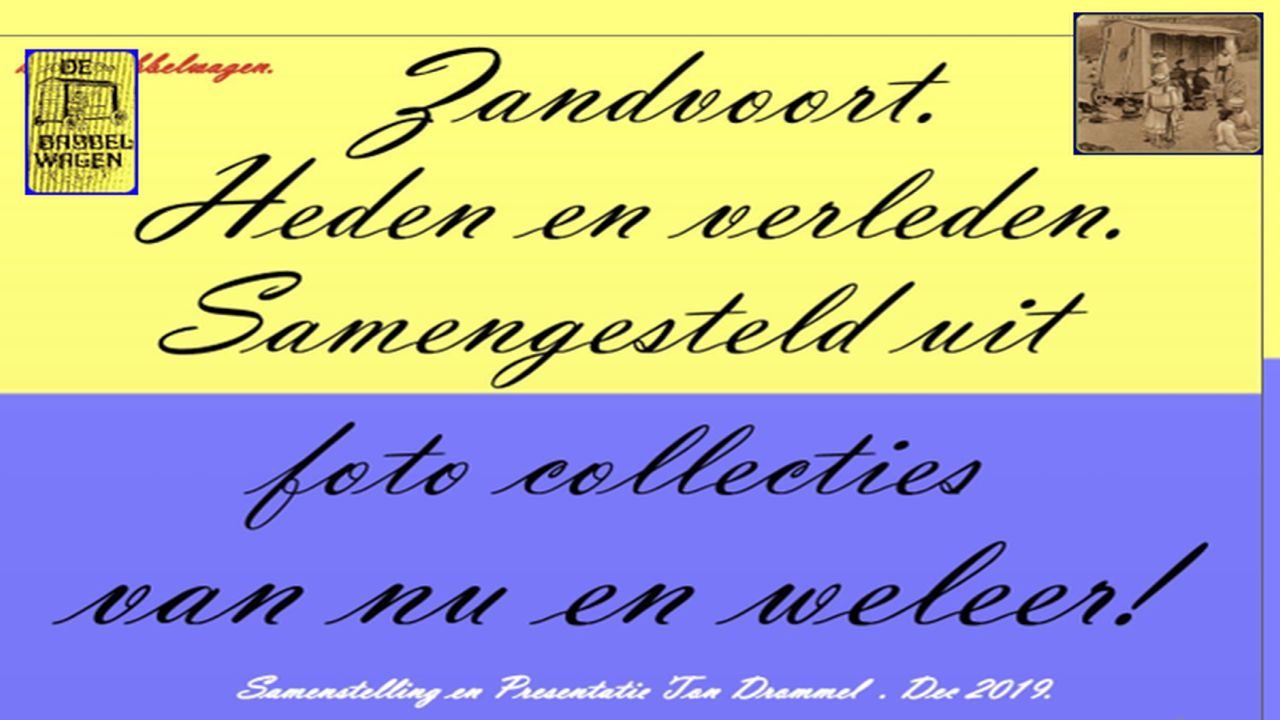 DE
BABBEL
WAGEN
bbelwagen.
Zandvoort.
Heden en verleden.
Samengesteld uit
foto collecties
van nu en weleer!
Samenstelling en Presentatie Ton Drommel . Dec 2019.